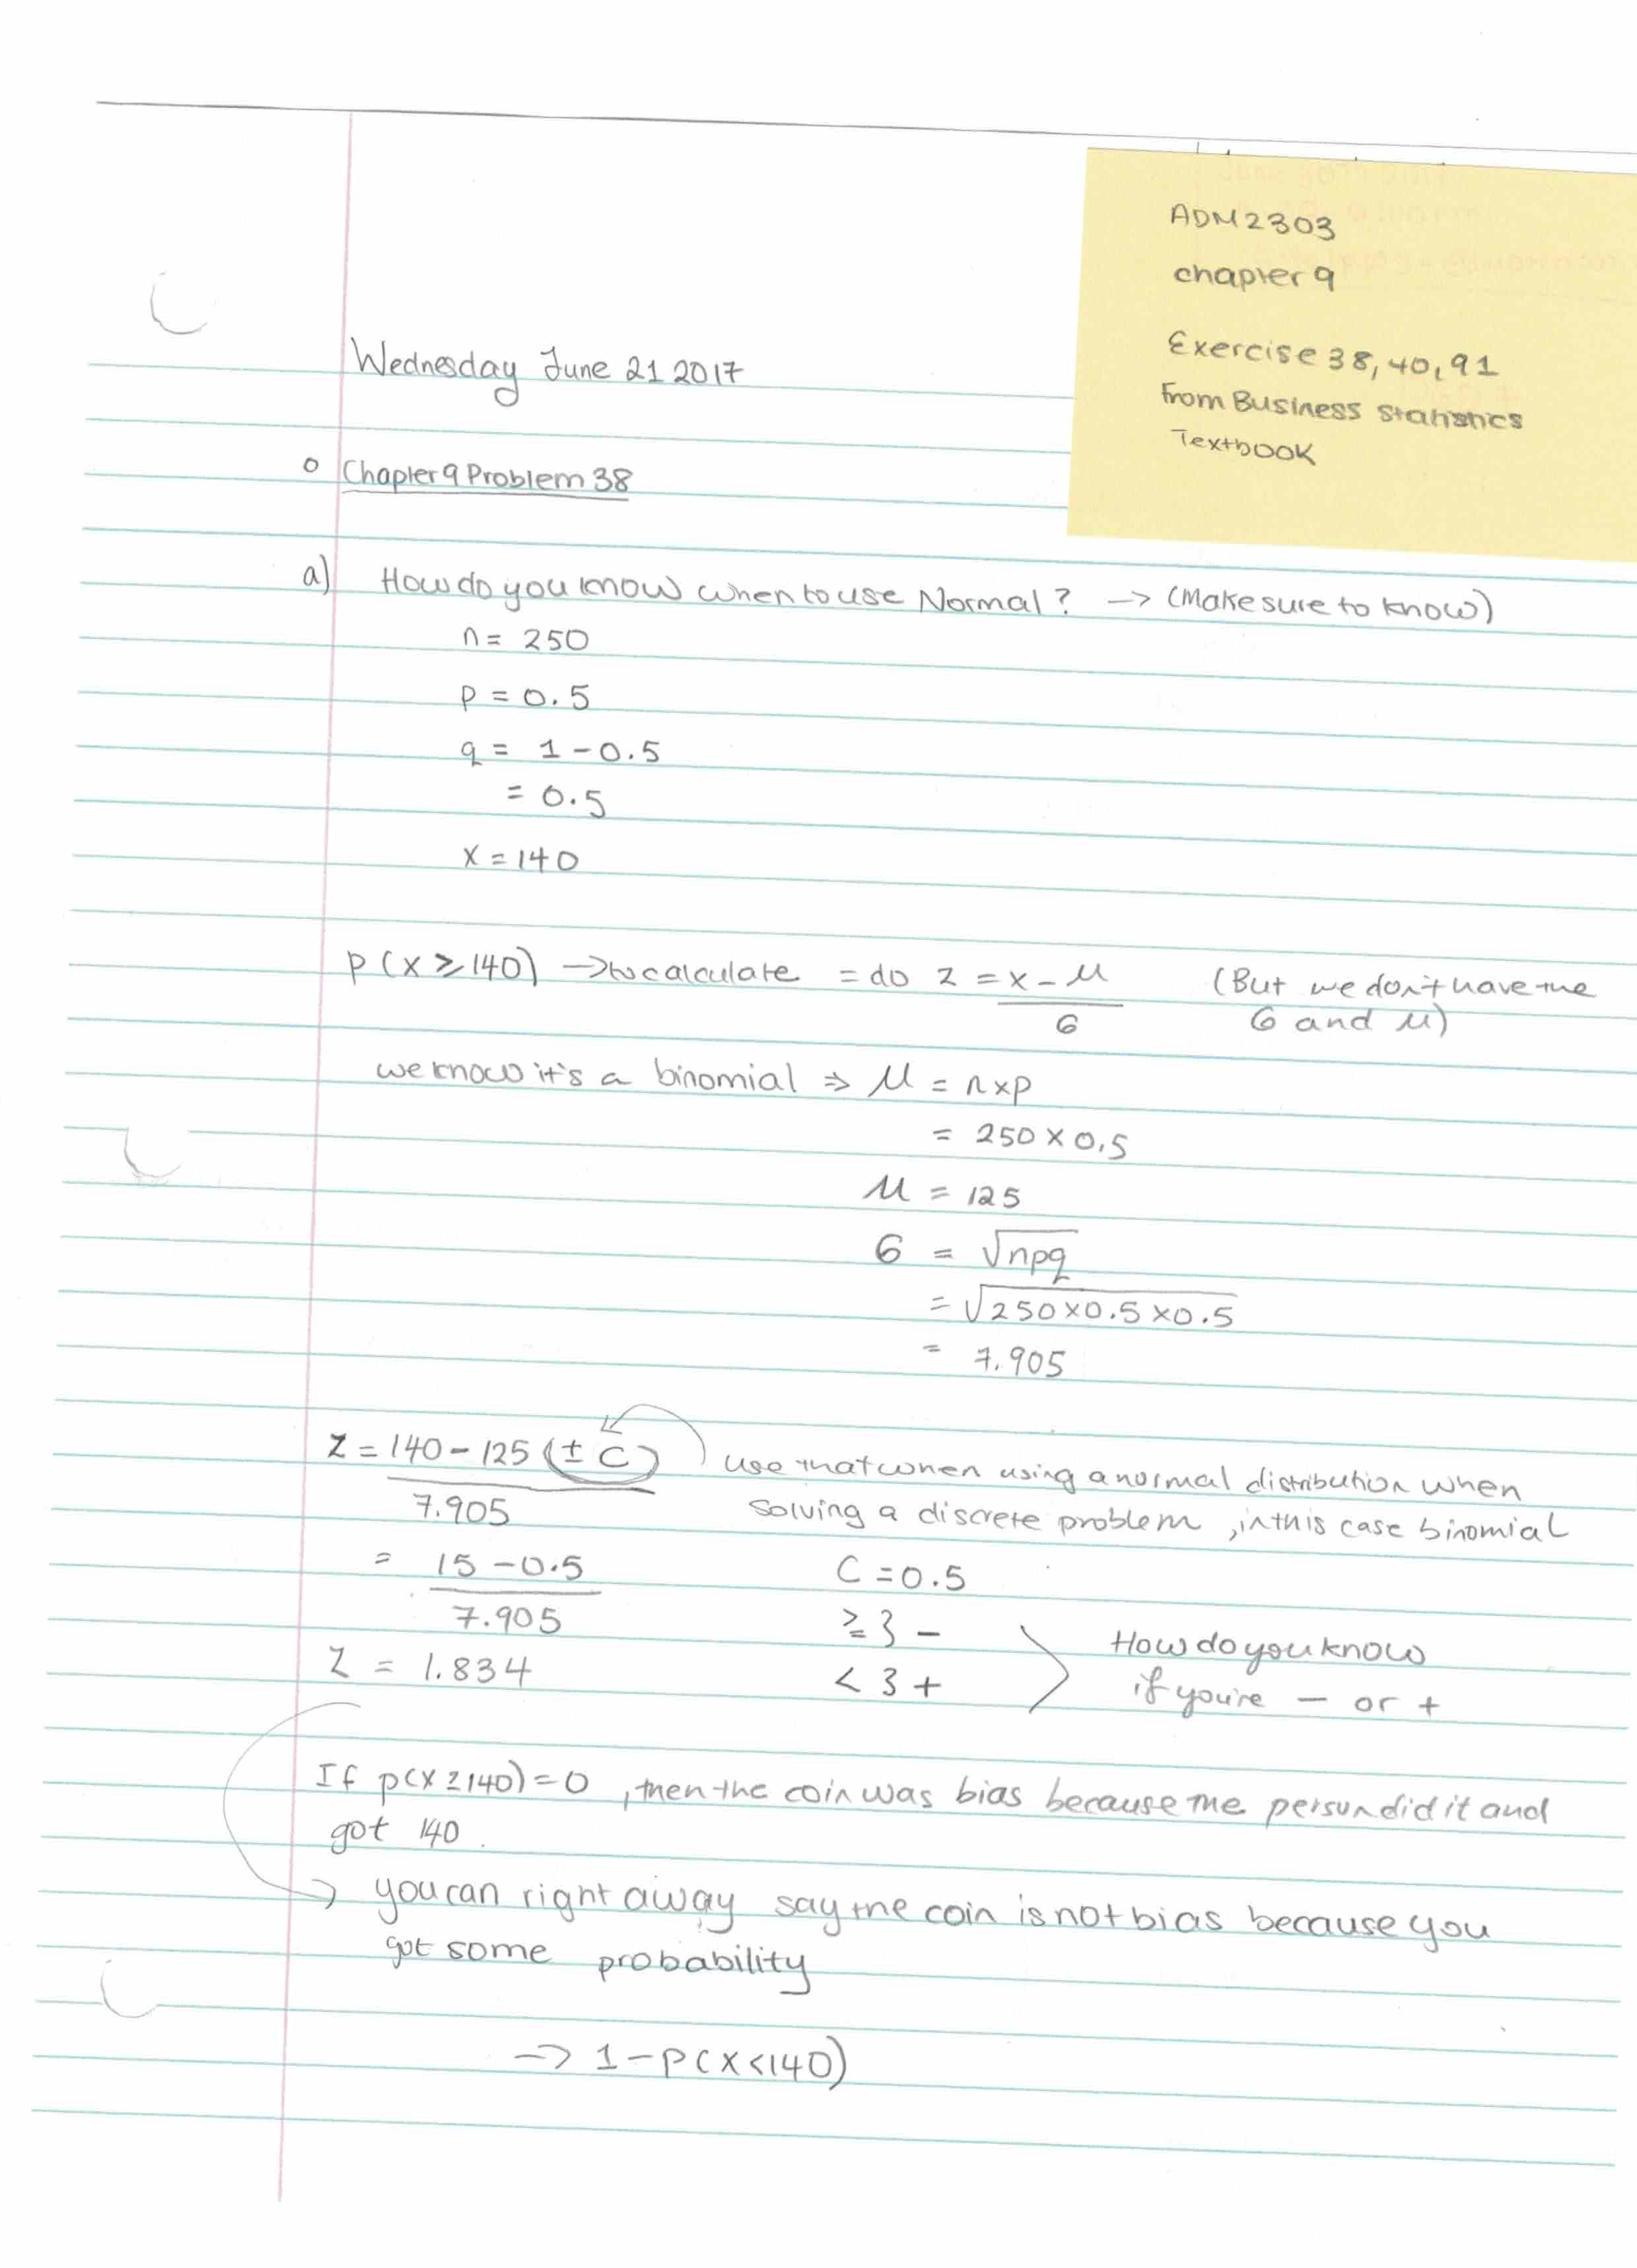 ADM2303
chapter 9
Exercise 38, 40, 91
From Business Statistics
Textbook
Wednesday June 21 2017
o Chapter 9 Problem 38
a) How do you know when to use Normal? -> (Make sure to know)
n = 250
p = 0.5
q = 1 - 0.5
= 0.5
x = 140
p (x ≥ 140) -> to calculate = do z = x - μ (But we don't have the
σ σ and μ)
we know it's a binomial => μ = n x p
= 250 x 0.5
μ = 125
σ = √npq
= √250 x 0.5 x 0.5
= 7.905
z = 140 - 125 (± C) use that when using a normal distribution when
7.905 solving a discrete problem, in this case binomial
= 15 - 0.5 C = 0.5
7.905 ≥ } -
z = 1.834 < } +
How do you know
if you're - or +
If p(x ≥ 140) = 0, then the coin was bias because the person did it and
got 140.
you can right away say the coin is not bias because you
got some probability
-> 1 - P(x < 140)